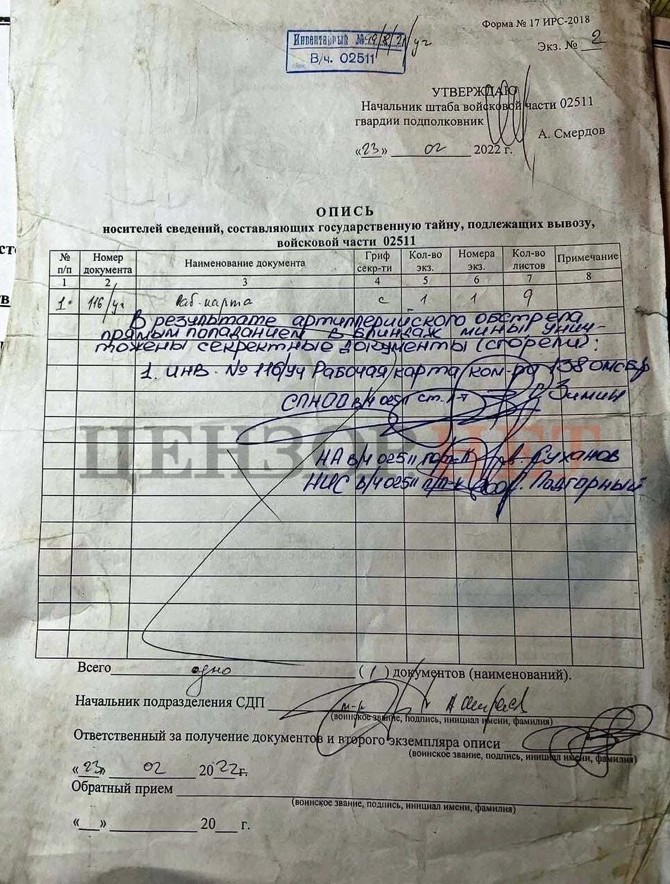 Форма № 17 ИРС-2018
Инвентарный №
Экз. № 2
В/ч. 02511
УТВЕРЖДАЮ
Начальник штаба войсковой части 02511
гвардии подполковник
А. Смердов
«23» 02 2022 г.
ОПИСЬ
носителей сведений, составляющих государственную тайну, подлежащих вывозу,
войсковой части 02511
№ п/п Номер документа Наименование документа Гриф секр-ти Кол-во экз. Номера экз. Кол-во листов Примечание
1 2 3 4 5 6 7 8
1. 116/уч Раб. карта с 1 1 9
В результате артиллерийского обстрела
прямым попаданием в блиндаж мины унич-
тожены секректные документы (сгорели):
1. инв. № 116/уч Рабочая карта ком-ра 138 омсбр
СПНОО в/ч 02511 ст. л-т Зимин
ЦЕНЗОР.НЕТ
НА в/ч 02511 Суханов
НИС в/ч 02511 Подгорный
Всего одно (1) документов (наименований).
Начальник подразделения СДП
(воинское звание, подпись, инициал имени, фамилия)
Ответственный за получение документов и второго экземпляра описи
(воинское звание, подпись, инициал имени, фамилия)
«23» 02 2022г.
Обратный прием
(воинское звание, подпись, инициал имени, фамилия)
«__» 20__ г.